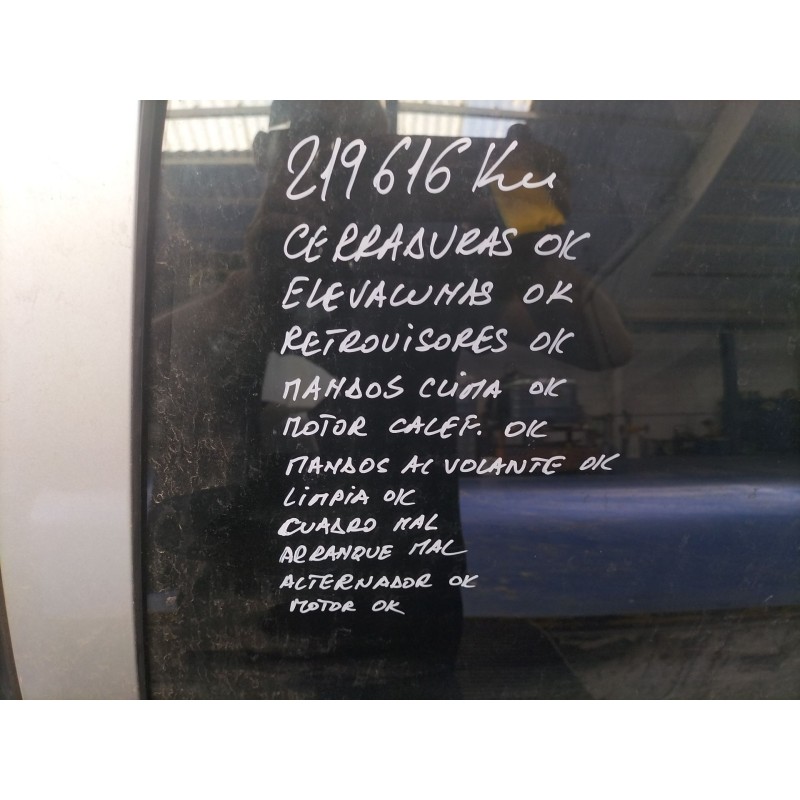 219616 Km
CERRADURAS OK
ELEVALUNAS OK
RETROVISORES OK
MANDOS CLIMA OK
MOTOR CALEF. OK
MANDOS AL VOLANTE OK
LIMPIA OK
CUADRO MAL
ARRANQUE MAL
ALTERNADOR OK
MOTOR OK